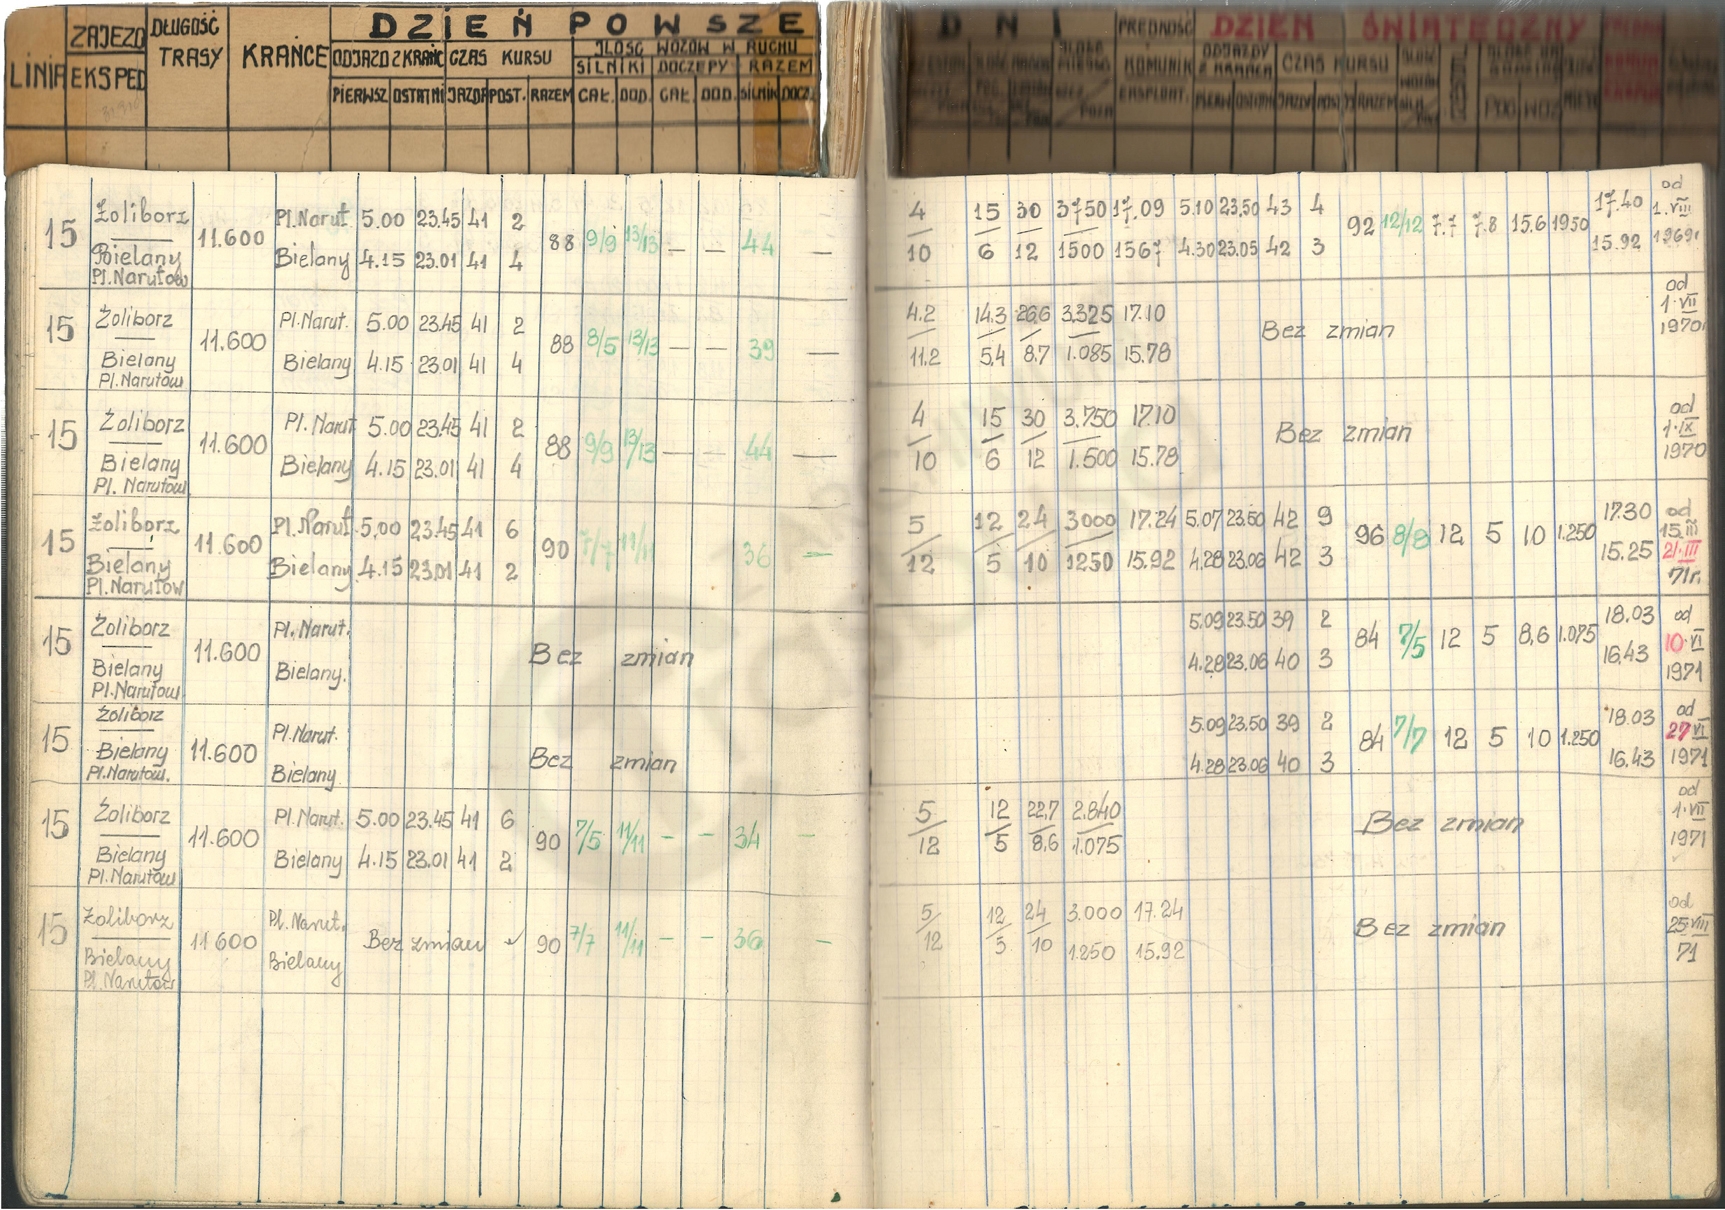 DZIEŃ POWSZE DNI DZIEŃ ŚWIĄTECZNY
LINIA ZAJEZD EKSPED DŁUGOŚĆ TRASY KRAŃCE ODJAZD Z KRAŃC CZAS KURSU ILOŚĆ WOZÓW W RUCHU
SILNIKI DOCZEPY RAZEM
PIERWSZ OSTATNI JAZDA POST. RAZEM CAŁ. DOD. CAŁ. DOD. SILNIK DOCZ.
PRĘDKOŚĆ KOMUNIK EKSPLOAT. ODJAZDY Z KRAŃCA CZAS KURSU
od
15 Żoliborz 11.600 Pl.Narut. 5.00 23.45 41 2 88 9/9 13/13 — — 44 — 4 15 30 3750 17.09 5.10 23.50 43 4 92 12/12 7.7 7.8 15.6 1950 17.40 1.VIII
Bielany Bielany 4.15 23.01 41 4 10 6 12 1500 1567 4.30 23.05 42 3 15.92 1969r
Pl.Narutow
od
15 Żoliborz 11.600 Pl.Narut. 5.00 23.45 41 2 88 8/5 13/13 — — 39 — 4.2 14.3 26.6 3.325 17.10 Bez zmian 1.VII
Bielany Bielany 4.15 23.01 41 4 11.2 5.4 8.7 1.085 15.78 1970r
Pl.Narutow
od
15 Żoliborz 11.600 Pl.Narut 5.00 23.45 41 2 88 9/9 13/13 — — 44 — 4 15 30 3.750 17.10 Bez zmian 1.IX
Bielany Bielany 4.15 23.01 41 4 10 6 12 1.500 15.78 1970
Pl. Narutow
15 Żoliborz 11.600 Pl.Narut 5.00 23.45 41 6 90 7/7 11/11 36 — 5 12 24 3000 17.24 5.07 23.50 42 9 96 8/8 12 5 10 1.250 17.30 od 15.III
Bielany Bielany 4.15 23.01 41 2 12 5 10 1250 15.92 4.28 23.06 42 3 15.25 21.III
Pl.Narutow 71r.
15 Żoliborz 11.600 Pl. Narut. Bez zmian 5.09 23.50 39 2 84 7/5 12 5 8,6 1.075 18.03 od 10.VI
Bielany Bielany. 4.28 23.06 40 3 16.43 1971
Pl.Narutow
15 Żoliborz 11.600 Pl.Narut. Bez zmian 5.09 23.50 39 2 84 7/7 12 5 10 1.250 18.03 od 27 VI
Bielany Bielany 4.28 23.06 40 3 16.43 1971
Pl.Narutow.
od
15 Żoliborz 11.600 Pl.Narut. 5.00 23.45 41 6 90 7/5 11/11 - - 34 — 5 12 22,7 2.840 Bez zmian 1.VII
Bielany Bielany 4.15 23.01 41 2 12 5 8,6 1.075 1971
Pl.Narutow
od
15 Żoliborz 11600 Pl.Narut. Bez zmian 90 7/7 11/11 - - 36 — 5 12 24 3.000 17.24 Bez zmian 25.VIII
Bielany Bielany 12 3 10 1250 15.92 71
Pl.Narutow